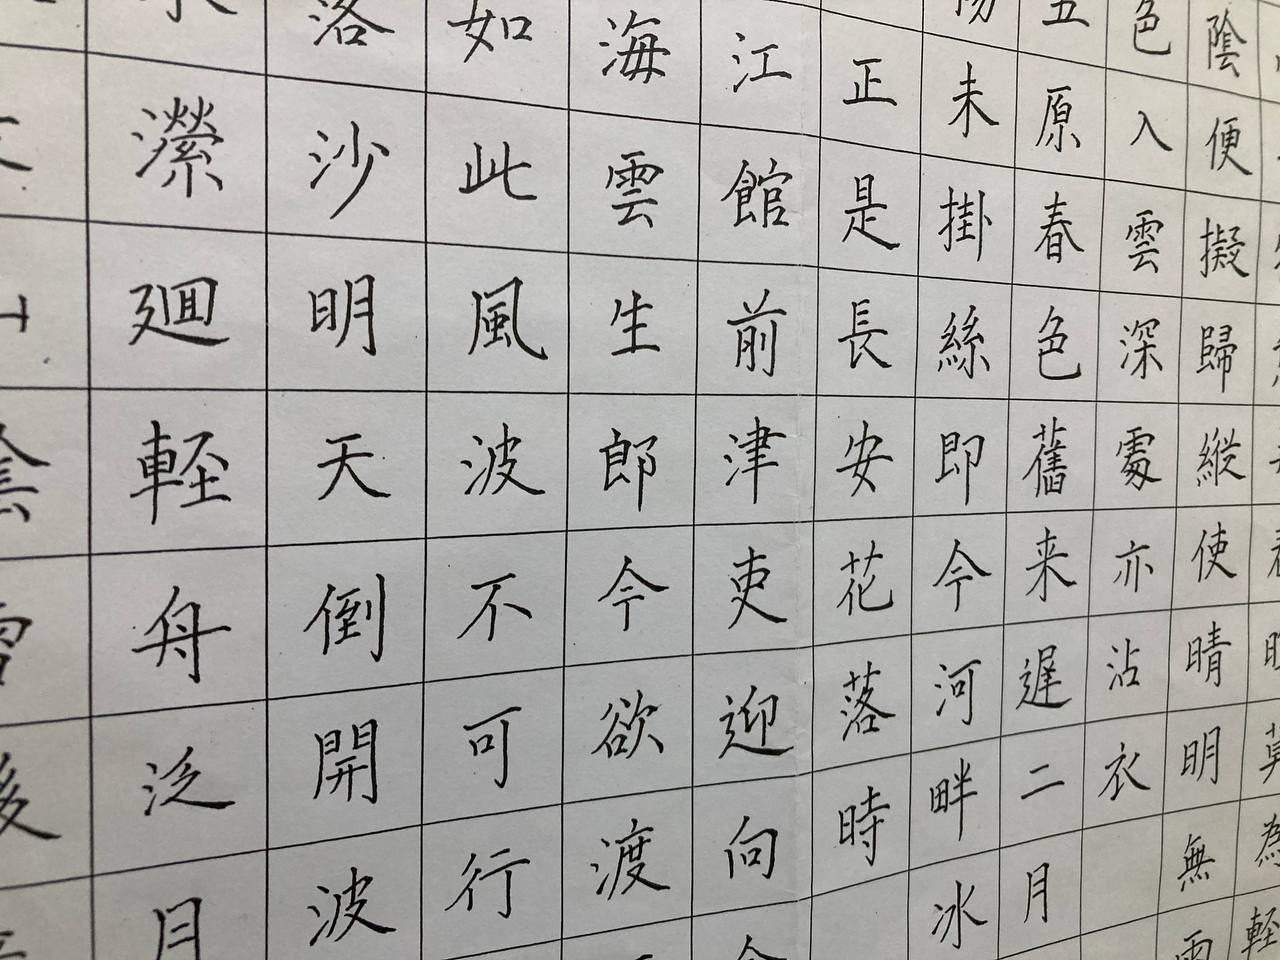 莫為輕
陰便擬歸縱使晴明無雨
色入雲深處亦沾衣
五原春色舊来遲二月
未掛絲即今河畔冰
正是長安花落時
江館前津吏迎向
海雲生郎今欲渡
如此風波不可行
落沙明天倒開波
瀠廻輕舟泛月